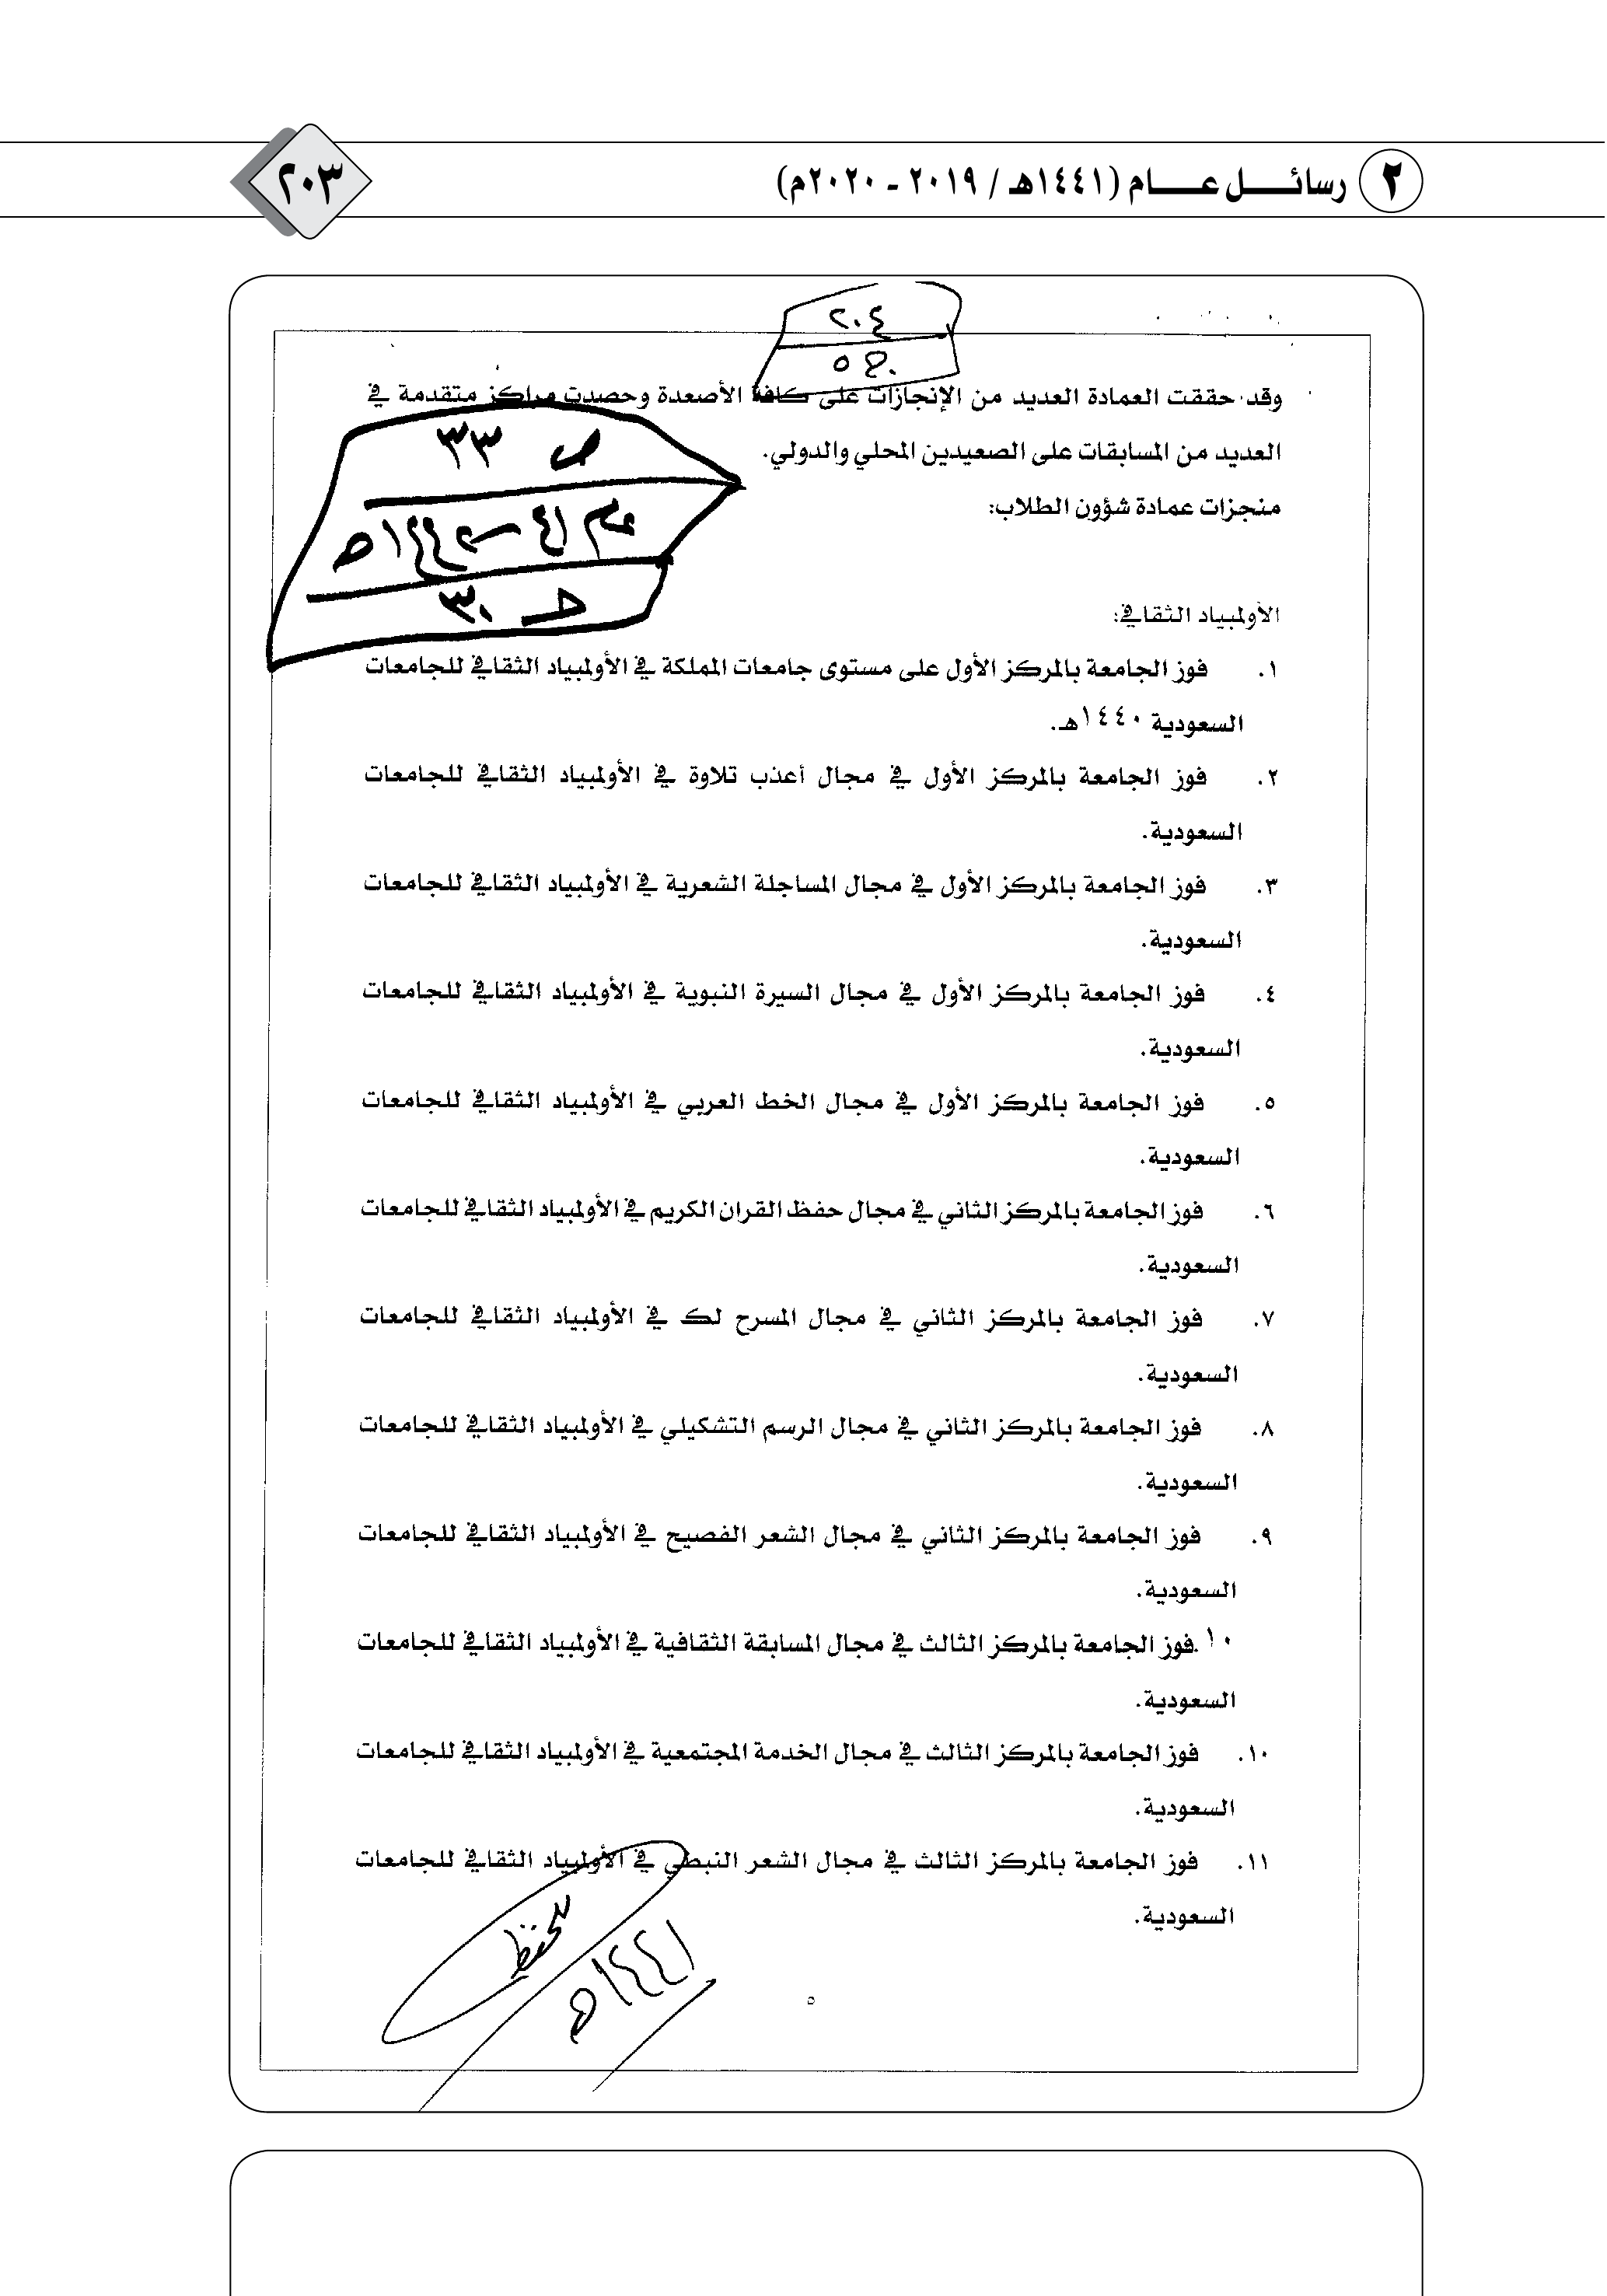 ٢ رسائل عام (١٤٤١هـ / ٢٠١٩ - ٢٠٢٠م)
٢٠٣
٢٠٤
وقد حققت العمادة العديد من الإنجازات على كافة الأصعدة وحصدت مراكز متقدمة في
العديد من المسابقات على الصعيدين المحلي والدولي.
ص ٣٣
منجزات عمادة شؤون الطلاب:
الأولمبياد الثقافي:
١. فوز الجامعة بالمركز الأول على مستوى جامعات المملكة في الأولمبياد الثقافي للجامعات
السعودية ١٤٤٠هـ.
٢. فوز الجامعة بالمركز الأول في مجال أعذب تلاوة في الأولمبياد الثقافي للجامعات
السعودية.
٣. فوز الجامعة بالمركز الأول في مجال المساجلة الشعرية في الأولمبياد الثقافي للجامعات
السعودية.
٤. فوز الجامعة بالمركز الأول في مجال السيرة النبوية في الأولمبياد الثقافي للجامعات
السعودية.
٥. فوز الجامعة بالمركز الأول في مجال الخط العربي في الأولمبياد الثقافي للجامعات
السعودية.
٦. فوز الجامعة بالمركز الثاني في مجال حفظ القران الكريم في الأولمبياد الثقافي للجامعات
السعودية.
٧. فوز الجامعة بالمركز الثاني في مجال المسرح لك في الأولمبياد الثقافي للجامعات
السعودية.
٨. فوز الجامعة بالمركز الثاني في مجال الرسم التشكيلي في الأولمبياد الثقافي للجامعات
السعودية.
٩. فوز الجامعة بالمركز الثاني في مجال الشعر الفصيح في الأولمبياد الثقافي للجامعات
السعودية.
١٠.فوز الجامعة بالمركز الثالث في مجال المسابقة الثقافية في الأولمبياد الثقافي للجامعات
السعودية.
١٠. فوز الجامعة بالمركز الثالث في مجال الخدمة المجتمعية في الأولمبياد الثقافي للجامعات
السعودية.
١١. فوز الجامعة بالمركز الثالث في مجال الشعر النبطي في الأولمبياد الثقافي للجامعات
السعودية.
للحفظ
١٤٤١هـ
٥